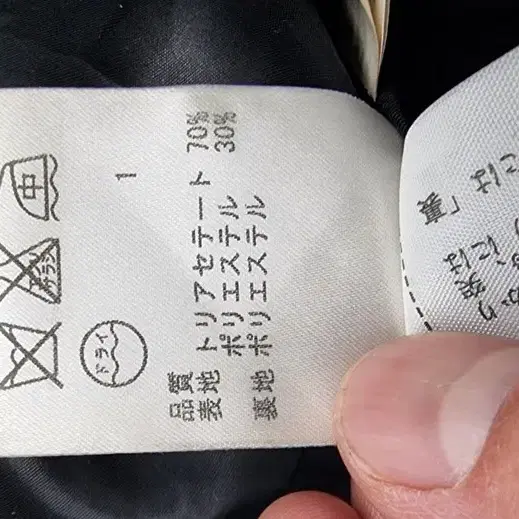 中
ドライ
1
品質
表地 トリアセテート 70%
ポリエステル 30%
裏地 ポリエステル
には「裏